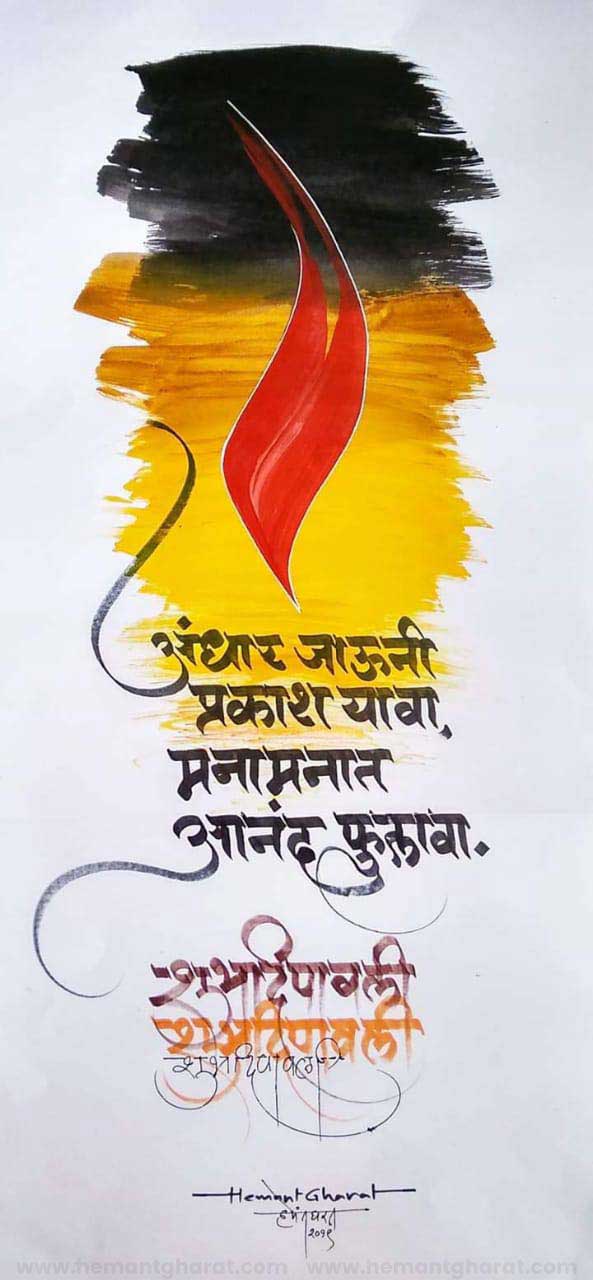 अंधार जाऊनी
प्रकाश यावा,
मनामनात
आनंद फुलावा.
शुभदिपावली
शुभदिपावली
शुभदिपावली
Hemant Gharat
हेमंत घरत
२०१९
www.hemantgharat.com www.hemantgharat.com